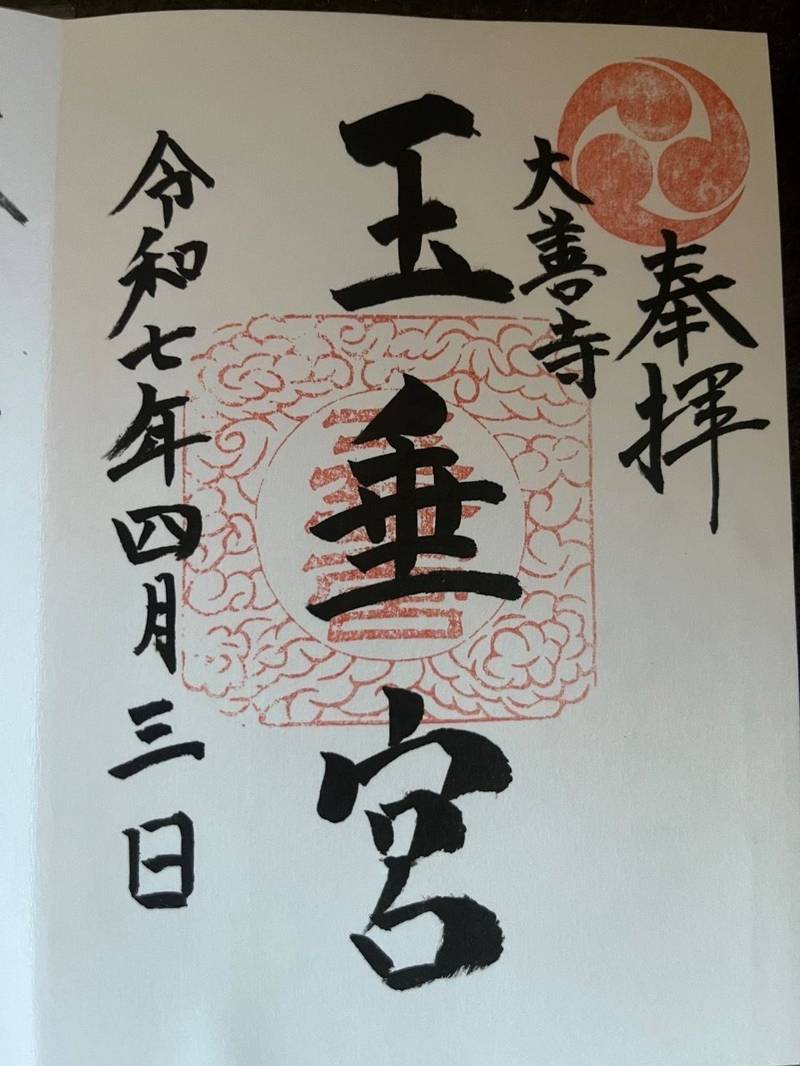 奉拝
大善寺
玉垂宮
令和七年四月三日